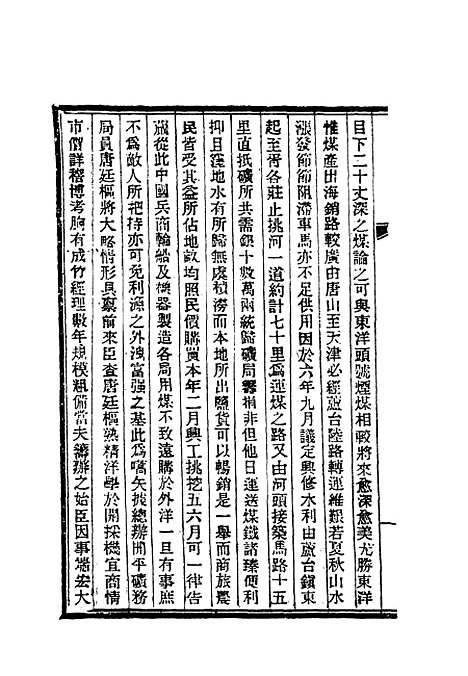 目下二十丈深之煤論之可與東洋頭號煙煤相較將來愈深愈美尤勝東洋
惟煤產出海銷路較廣由唐山至天津必經蘆台陸路轉運維艱若夏秋山水
漲發節節阻滯車馬亦不足供用因於六年九月議定興修水利由蘆台鎮東
起至胥各莊止挑河一道約計七十里為運煤之路又由河頭接築馬路十五
里直抵礦所共需銀十數萬兩統歸礦局籌捐非但他日運送煤鐵諸臻便利
抑且窪地水有所歸無處積澇而本地所出鹽貨可以暢銷是一舉而商旅農
民皆受其益所佔地畝均照民價購買本年二月興工挑挖五六月可一律告
蕆從此中國兵商輪船及機器製造各局用煤不致遠購於外洋一旦有事庶
不為敵人所把持亦可免利源之外洩富強之基此為嚆矢據總辦開平礦務
局員唐廷樞將大略情形具稟前來臣查唐廷樞熟精洋學於開採機宜商情
市價詳稽博考胸有成竹經理數年規模粗備當夫籌辦之始臣因事端宏大